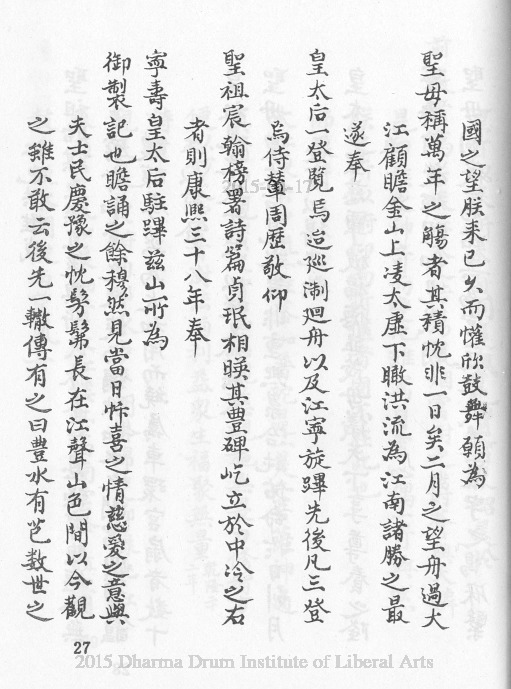 國之望朕来已久而懽欣鼓舞願為
聖母稱萬年之觴者其積忱非一日矣二月之望舟過大
江顧瞻金山上凌太虛下瞰洪流為江南諸勝之最
遂奉
皇太后一登覽焉迨巡淛迴舟以及江寧旋蹕先後凡三登
焉侍輦周歷敬仰
聖祖宸翰榜署詩篇貞珉相暎其豊碑屹立於中泠之右
者則康熙三十八年奉
寧壽皇太后駐蹕兹山所為
御製記也瞻誦之餘穆然見當日忭喜之情慈愛之意與
夫士民慶豫之忱髣髴長在江聲山色間以今觀
之雖不敢云後先一轍傳有之曰豊水有芑数世之
27
2015 Dharma Drum Institute of Liberal Arts